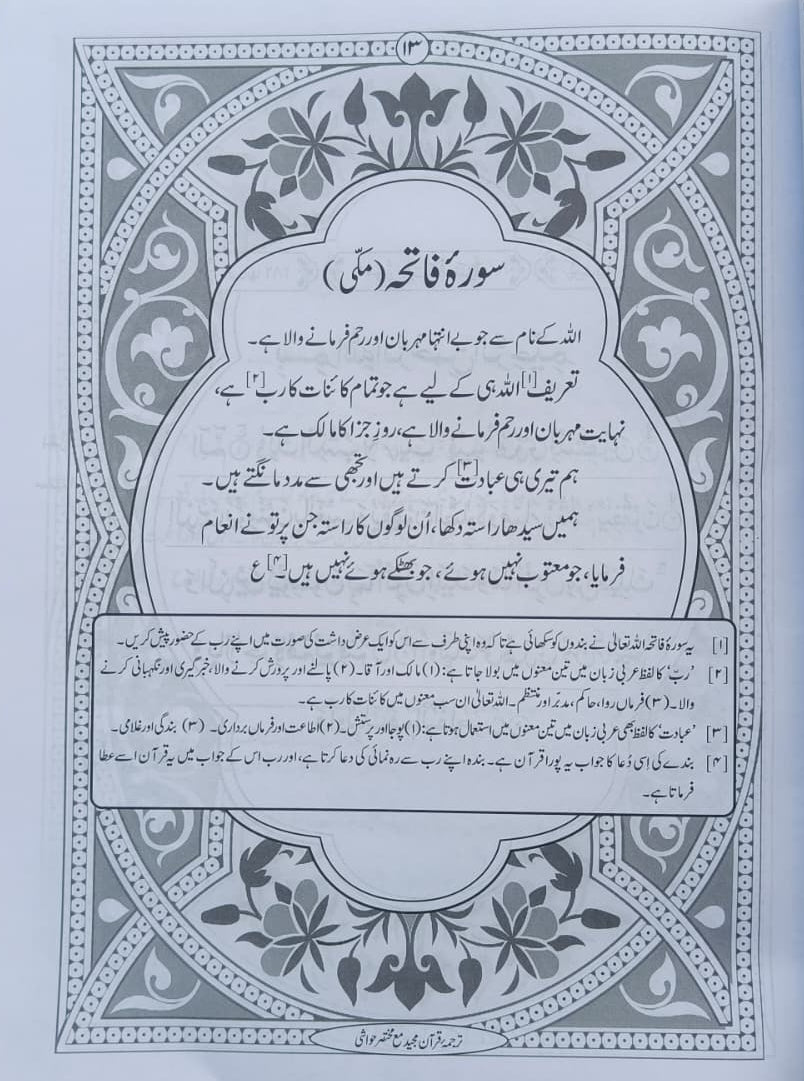 ۱۳
سورۂ فاتحہ (مکّی)
اللہ کے نام سے جو بے انتہا مہربان اور رحم فرمانے والا ہے۔
تعریف[۱] اللہ ہی کے لیے ہے جو تمام کائنات کا رب[۲] ہے،
نہایت مہربان اور رحم فرمانے والا ہے، روزِ جزا کا مالک ہے۔
ہم تیری ہی عبادت[۳] کرتے ہیں اور تجھی سے مدد مانگتے ہیں۔
ہمیں سیدھا راستہ دکھا، اُن لوگوں کا راستہ جن پر تونے انعام
فرمایا، جو معتوب نہیں ہوئے، جو بھٹکے ہوئے نہیں ہیں۔[۴] ع
[۱] یہ سورۂ فاتحہ اللہ تعالیٰ نے بندوں کو سکھائی ہے تاکہ وہ اپنی طرف سے اس کو ایک عرض داشت کی صورت میں اپنے رب کے حضور پیش کریں۔
[۲] ’ربّ‘ کا لفظ عربی زبان میں تین معنوں میں بولا جاتا ہے: (۱) مالک اور آقا۔ (۲) پالنے اور پرورش کرنے والا، خبر گیری اور نگہبانی کرنے
والا۔ (۳) فرماں روا، حاکم، مدبّر اور منتظم۔ اللہ تعالیٰ ان سب معنوں میں کائنات کا رب ہے۔
[۳] ’عبادت‘ کا لفظ بھی عربی زبان میں تین معنوں میں استعمال ہوتا ہے: (۱) پوجا اور پرستش۔ (۲) اطاعت اور فرماں برداری۔ (۳) بندگی اور غلامی۔
[۴] بندے کی اِسی دُعا کا جواب یہ پورا قرآن ہے۔ بندہ اپنے رب سے رہ نمائی کی دعا کرتا ہے، اور رب اس کے جواب میں یہ قرآن اسے عطا
فرماتا ہے۔
ترجمۂ قرآن مجید مع مختصر حواشی